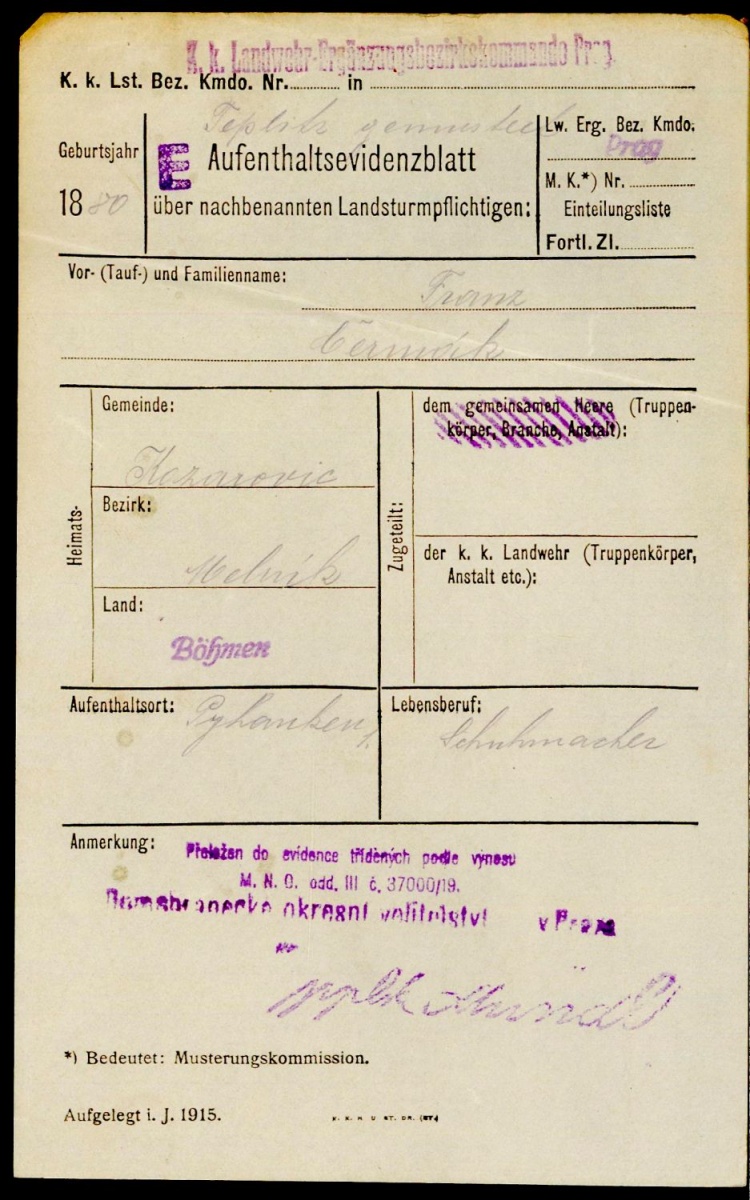 K. k. Landwehr-Ergänzungsbezirkskommando Prag.
K. k. Lst. Bez. Kmdo. Nr. in
Teplitz gemustert
Geburtsjahr
1880
E Aufenthaltsevidenzblatt
über nachbenannten Landsturmpflichtigen:
Lw. Erg. Bez. Kmdo.
Prag
M. K.*) Nr.
Einteilungsliste
Fortl. Zl.
Vor- (Tauf-) und Familienname:
Franz
Čermák
Heimats-
Gemeinde:
Kozarovic
Bezirk:
Melnik
Land:
Böhmen
Zugeteilt:
dem gemeinsamen Heere (Truppen-
körper, Branche, Anstalt):
der k. k. Landwehr (Truppenkörper,
Anstalt etc.):
Aufenthaltsort:
Pyhanken
Lebensberuf:
Schuhmacher
Anmerkung:
Přeložen do evidence tříděných podle výnosu
M. N. O. odd. III č. 37000/19.
Domobranecké okresní velitelství v Praze
*) Bedeutet: Musterungskommission.
Aufgelegt i. J. 1915.